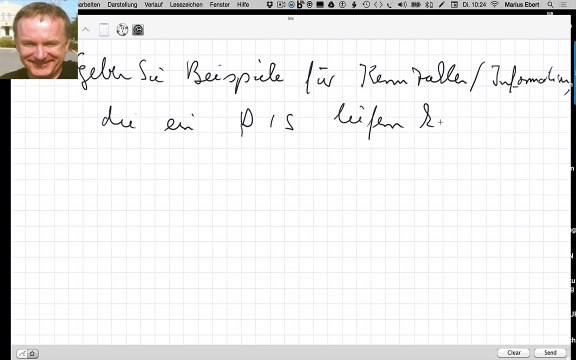 arbeiten Darstellung Verlauf Lesezeichen Fenster Hilfe Di. 10:24 Marius Ebert
geben Sie Beispiele für Kennzahlen/Informationen,
die ein PIS liefern k.
Clear Send